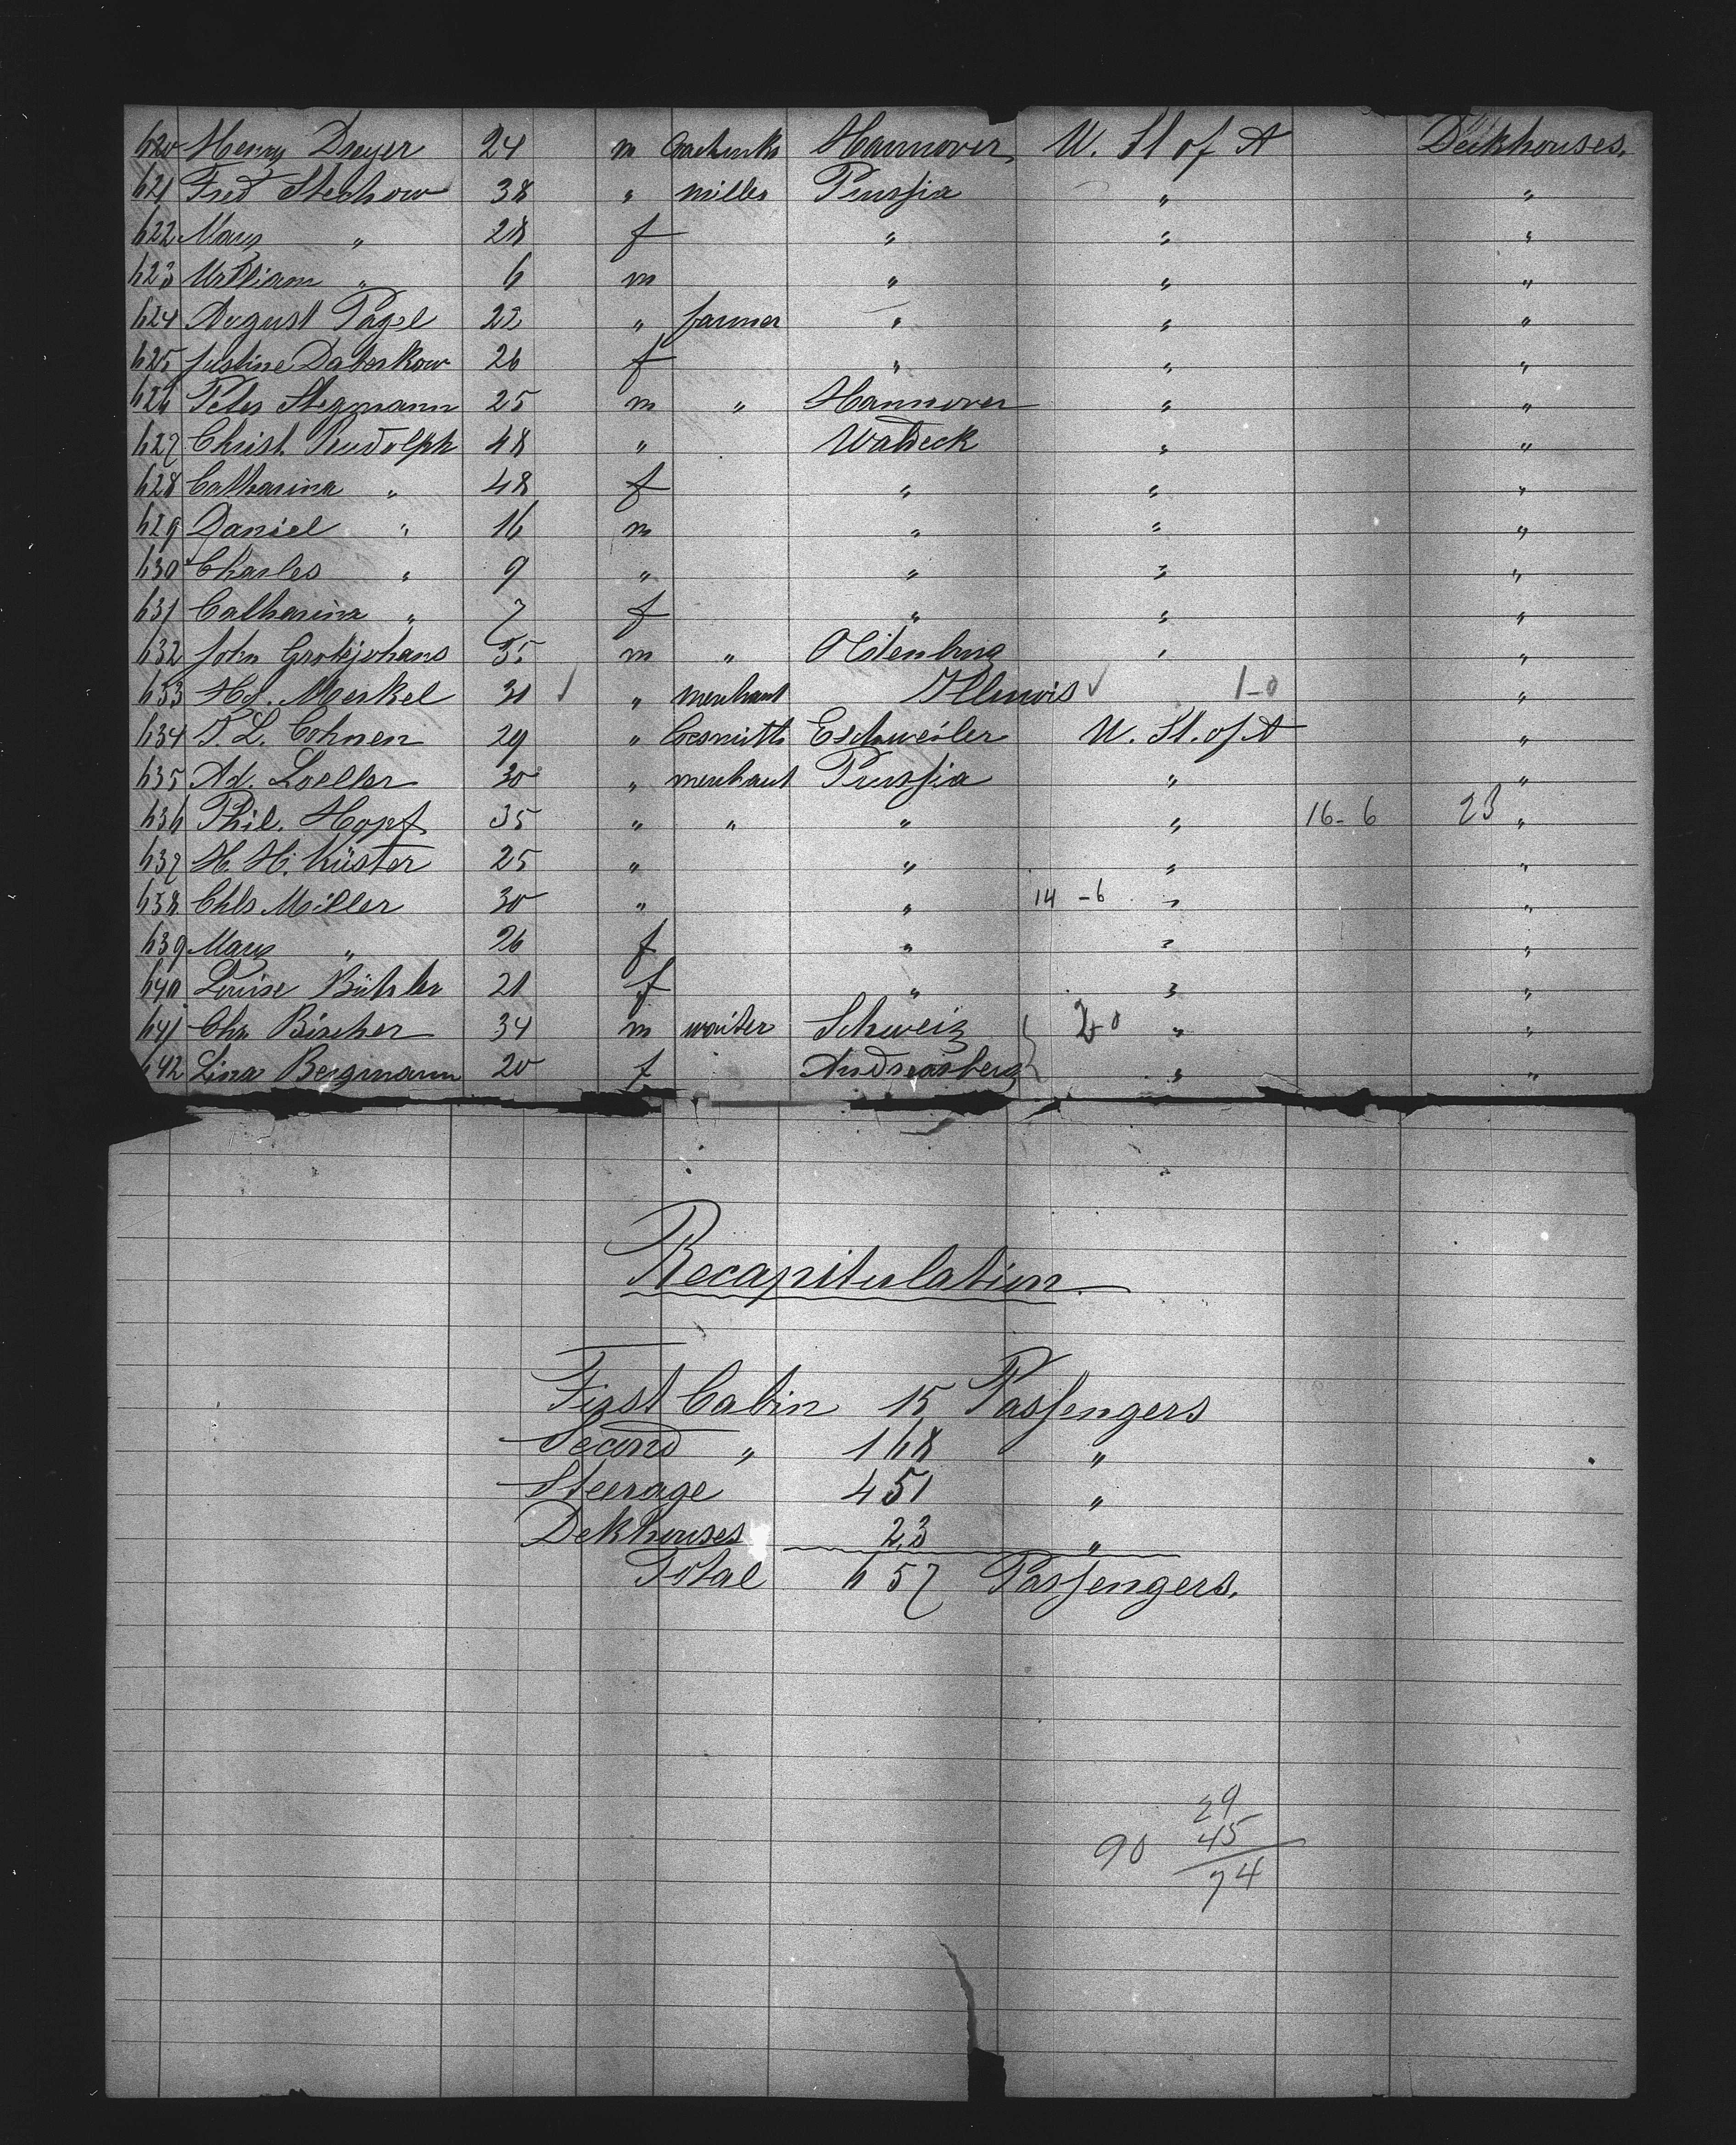 620 Henry Dreyer 24 m Hannover U. St of A Deckhouses.
621 Fred Stechow 38 " miller Prussia " "
622 Mary " 28 f " " "
623 William " 6 m " " "
624 August Pagel 22 " farmer " " "
625 Justine Daberkow 26 f " " "
626 Peter Stegmann 25 m " Hannover " "
627 Christ. Rudolph 48 " Waldeck " "
628 Catharina " 48 f " " "
629 Daniel " 16 m " " "
630 Charles " 9 " " " "
631 Catharina " 7 f " " "
632 John Grotejohans 35 m " Oldenburg " "
633 Hy. Merkel 31 " merchant Illinois 1-0 "
634 P. L. Cohnen 29 " Eschweiler U. St. of A "
635 Ad. Loelkr 30 " merchant Prussia " "
636 Phil. Hopf 35 " " " " 16-6 23 "
637 H. H. Küster 25 " " " "
638 Chls Miller 30 " " 14-6 " "
639 Mary " 26 f " " "
640 Louise 21 f " " "
641 Chr. Bircher 34 m waiter Schweiz 2-0 " "
642 Lina Bergmann 20 f Andreasberg " "
Recapitulation.
First Cabin 15 Passengers
Second " 168 "
Steerage 451 "
Dekhouses 23 "
Total 657 Passengers.
29
90 45
74